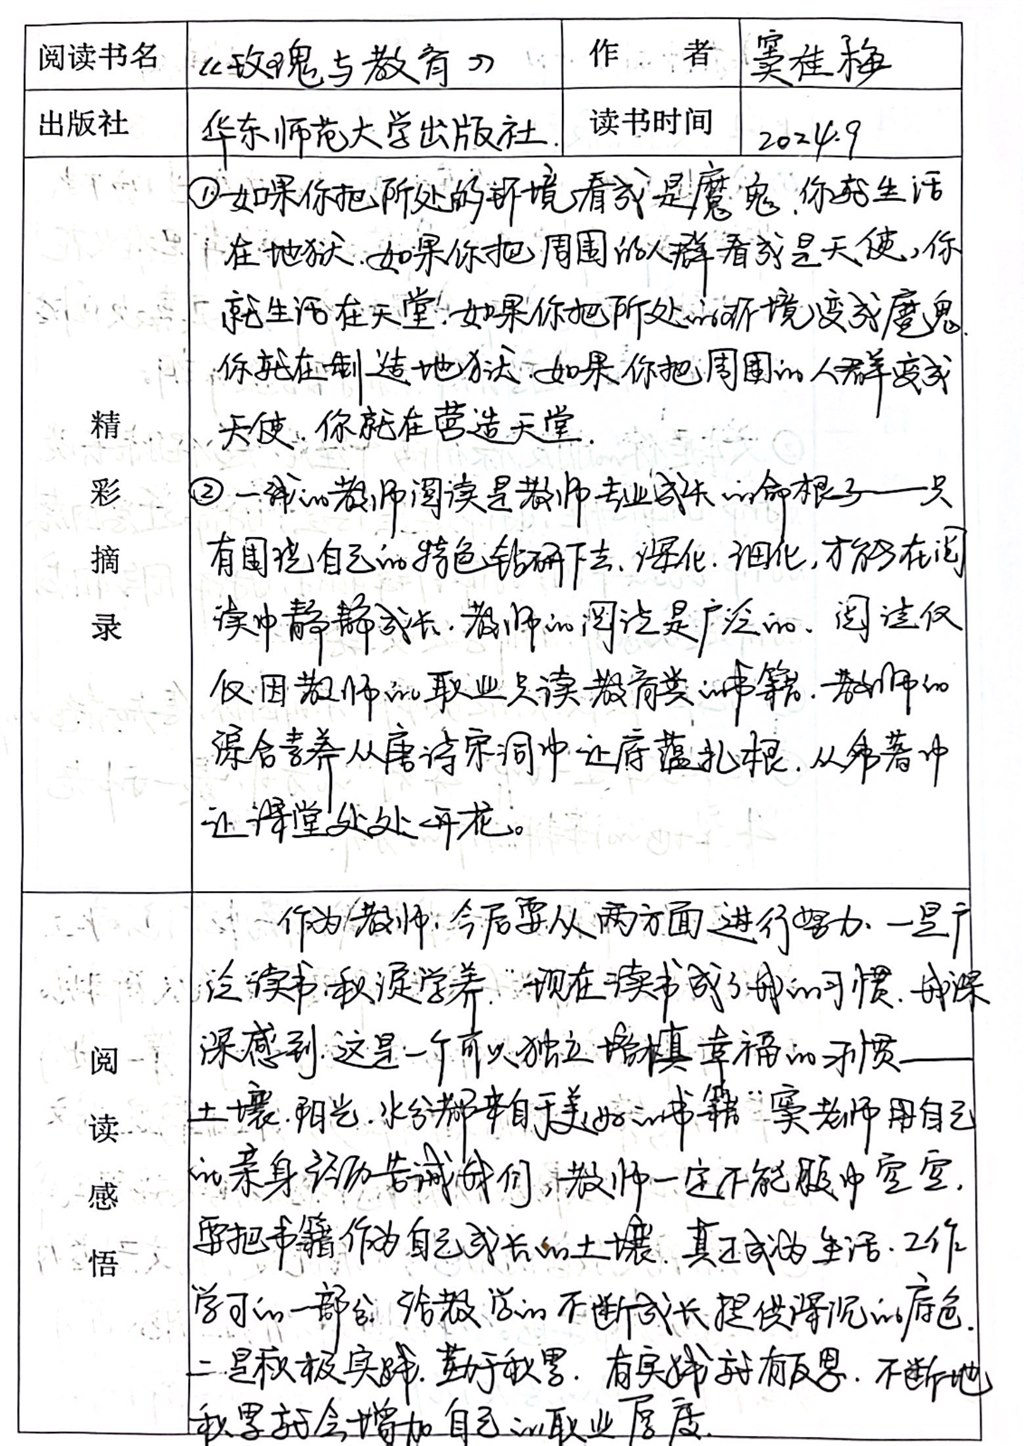 阅读书名 《玫瑰与教育》 作者 窦桂梅
出版社 华东师范大学出版社. 读书时间 2024.9
精彩摘录
①如果你把所处的环境看成是魔鬼,你就生活
在地狱.如果你把周围的人群看成是天使,你
就生活在天堂!如果你把所处的环境变成魔鬼.
你就在制造地狱.如果你把周围的人群变成
天使.你就在营造天堂.
②一我的教师阅读是教师专业成长的命根子——只
有围绕自己的特色钻研下去.深化.细化,才能在阅
读中静静成长.教师的阅读是广泛的.阅读仅
仅因教师的职业只读教育类的书籍.教师的
综合素养从唐诗宋词中让底蕴扎根.从名著中
让课堂处处开花。
阅读感悟
作为教师.今后要从两方面进行努力.一是广
泛读书,积淀学养."现在读书成了我的习惯.我深
深感到.这是一个可以独立培植幸福的习惯——
土壤.阳光.水分都来自于美好的书籍"窦老师用自己
的亲身行动告诫我们,教师一定不能腹中空空.
要把书籍作为自己成长的土壤.真正成为生活.工作
学习的一部分.给教学的不断成长提供深沉的底色.
二是积极实践.勤于积累.有实践就有反思.不断地
积累就会增加自己的职业厚度.